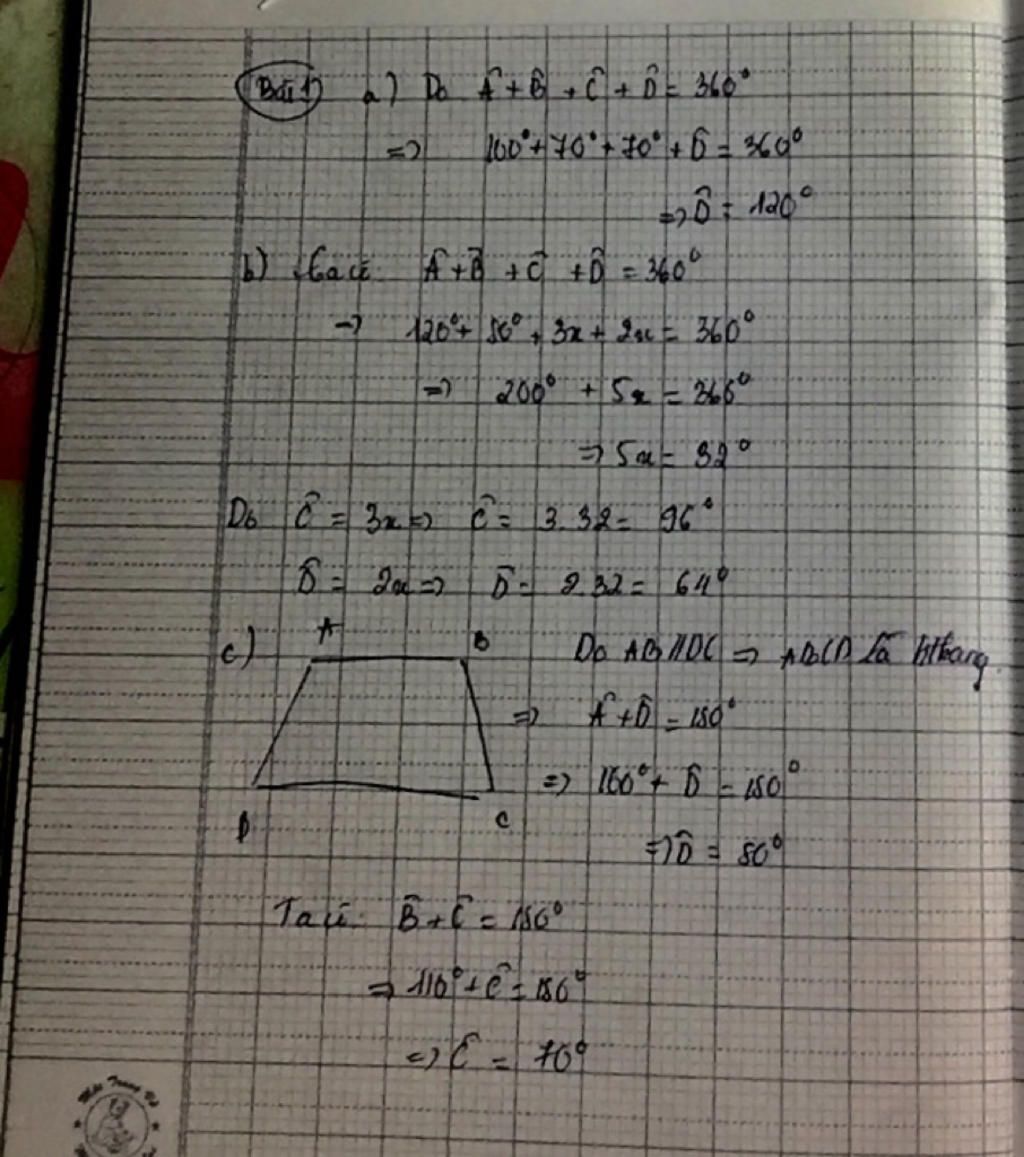 Bài 1) a) Do Â + B̂ + Ĉ + D̂ = 360°
=> 100° + 70° + 70° + D̂ = 360°
=> D̂ = 120°
b) Ta có Â + B̂ + Ĉ + D̂ = 360°
=> 120° + 80° + 3x + 2x = 360°
=> 200° + 5x = 360°
=> 5x = 32°
Do Ĉ = 3x => Ĉ = 3.32 = 96°
D̂ = 2x => D̂ = 2.32 = 64°
c) A B Do AB//DC => ABCD là hthang
=> Â + D̂ = 180°
=> 100° + D̂ = 180°
D C
=> D̂ = 80°
Ta có B̂ + Ĉ = 180°
=> 110° + Ĉ = 180°
=> Ĉ = 70°